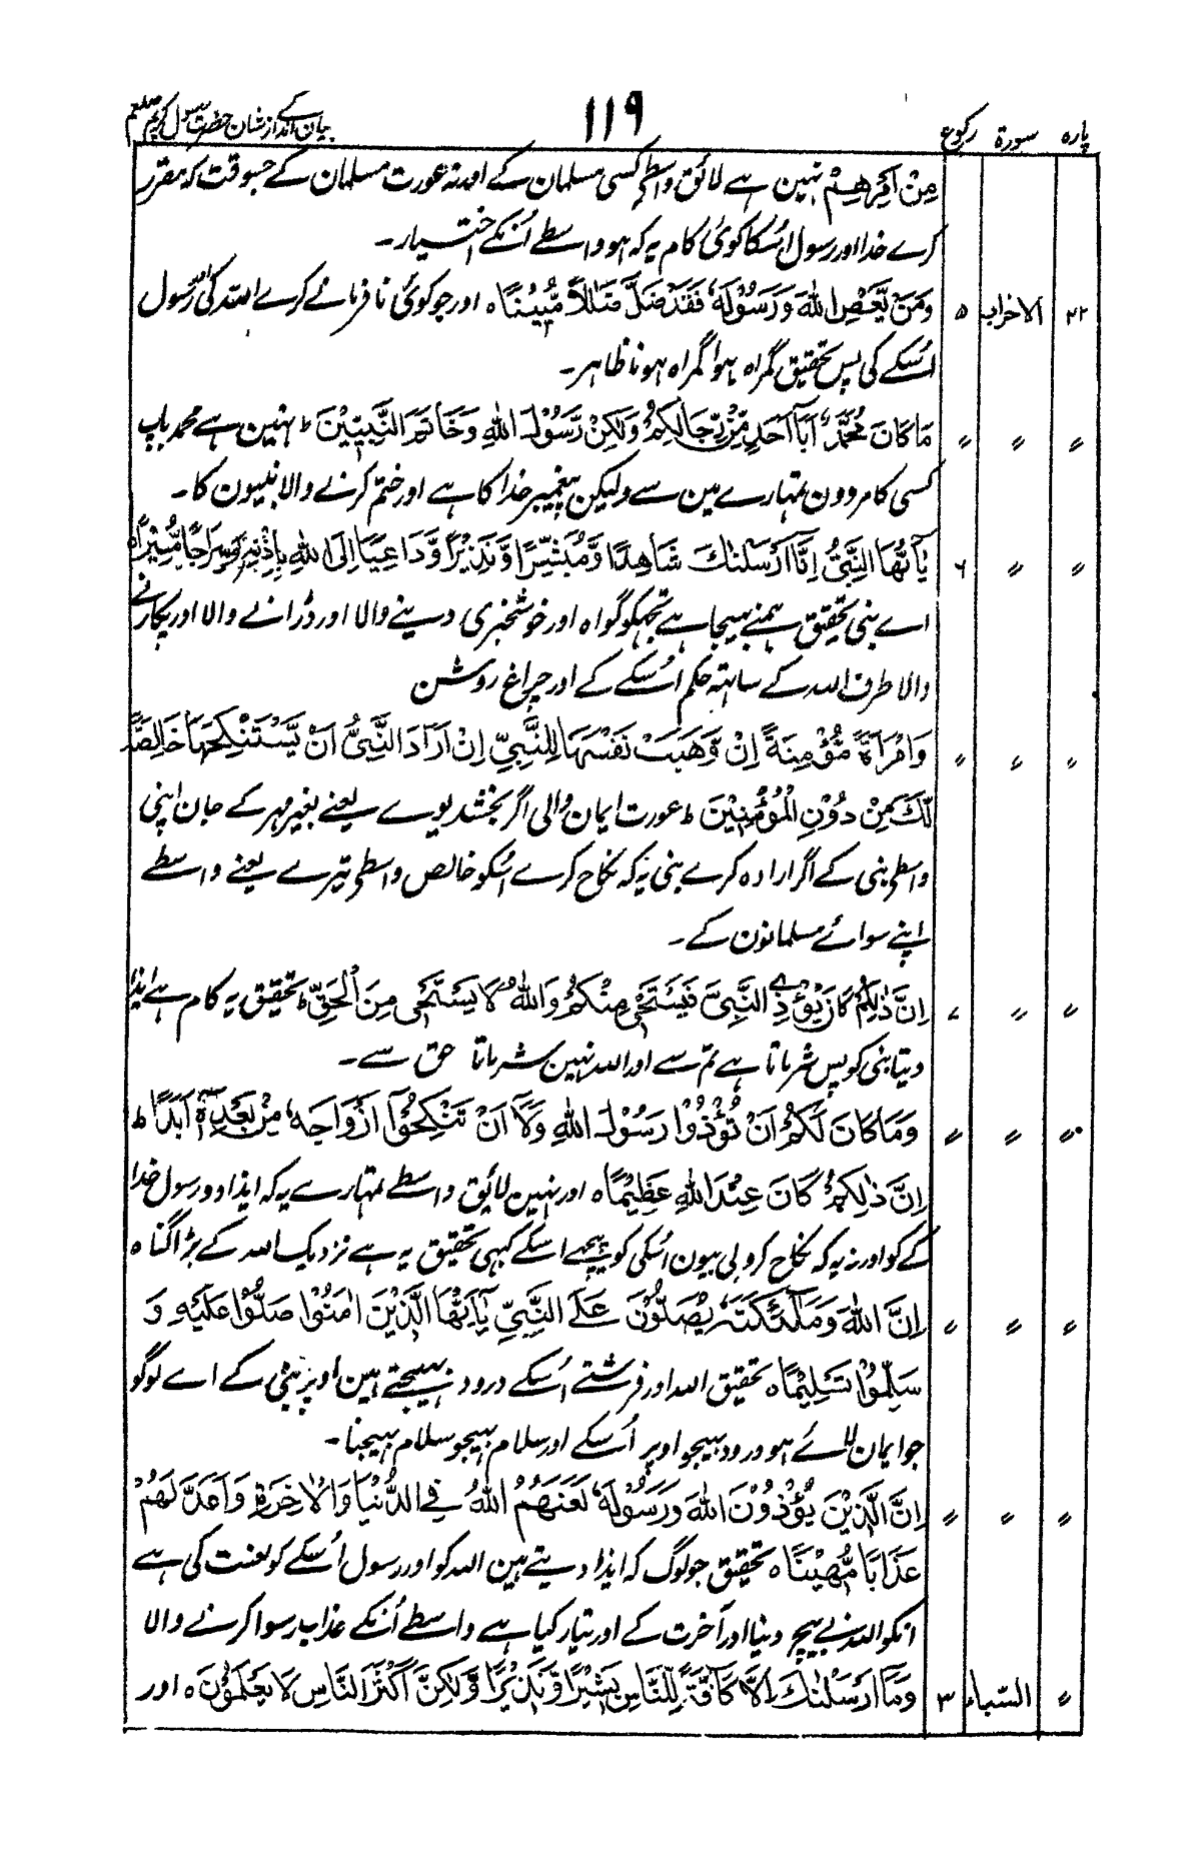 پارہ سورۃ رکوع ۱۱۹ بیان کے انداز شان حضرت رسول کریم صلعم
مِنْ اَمْرِهِمْ نہین ہے لائق واسطے کسی مسلمان کے اور نہ عورت مسلمان کے جسوقت کہ مقرر
کرے خدا اور رسول اُسکا کوئی کام یہ کہ ہو واسطے اُنکے اختیار۔
۲۲ الاحزاب ۵ وَمَنْ يَّعْصِ اللهَ وَرَسُوْلَهٗ فَقَدْ ضَلَّ ضَلٰلًا مُّبِيْنًا ہ اور جو کوئی نافرمانے کرے اللہ کی اور رسول
اُسکے کی پس تحقیق گمراہ ہوا گمراہ ہونا ظاہر۔
〃 〃 〃 مَا كَانَ مُحَمَّدٌ اَبَآ اَحَدٍ مِّنْ رِّجَالِكُمْ وَلٰكِنْ رَّسُوْلَ اللهِ وَخَاتَمَ النَّبِيّٖنَ ط نہین ہے محمد باپ
کسی کا مردون تمہارے مین سے ولیکن پیغمبر خدا کا ہے اور ختم کرنے والا نبیون کا۔
〃 〃 ۶ يٰٓاَيُّهَا النَّبِيُّ اِنَّآ اَرْسَلْنٰكَ شَاهِدًا وَّمُبَشِّرًا وَّنَذِيْرًا وَّدَاعِيًا اِلَى اللهِ بِاِذْنِهٖ وَسِرَاجًا مُّنِيْرًا ہ
اے نبی تحقیق ہمنے بہیجا ہے تجہکو گواہ اور خوشخبری دینے والا اور ڈرانے والا اور پکارنے
والا طرف اللہ کے ساتہہ حکم اُسکے کے اور چراغ روشن
〃 〃 〃 وَامْرَاَةً مُّؤْمِنَةً اِنْ وَّهَبَتْ نَفْسَهَا لِلنَّبِيِّ اِنْ اَرَادَ النَّبِيُّ اَنْ يَّسْتَنْكِحَهَا خَالِصَةً
لَّكَ مِنْ دُوْنِ الْمُؤْمِنِيْنَ ط عورت ایمان والی اگر بخشدیوے یعنے بغیر مہر کے جان اپنی
واسطے نبی کے اگر ارادہ کرے نبی یہ کہ نکاح کرے اُسکو خالص واسطے تیرے یعنے واسطے
اپنے سوائے مسلمانون کے۔
〃 〃 ۷ اِنَّ ذٰلِكُمْ كَانَ يُؤْذِے النَّبِيَّ فَيَسْتَحْيٖ مِنْكُمْ وَاللهُ لَا يَسْتَحْيٖ مِنَ الْحَقِّ ط تحقیق یہ کام ہے ایذا
دیتا نبی کو پس شرماتا ہے تم سے اور اللہ نہین شرماتا حق سے۔
〃 〃 〃 وَمَا كَانَ لَكُمْ اَنْ تُؤْذُوْا رَسُوْلَ اللهِ وَلَآ اَنْ تَنْكِحُوْٓا اَزْوَاجَهٗ مِنْ بَعْدِهٖٓ اَبَدًا ط
اِنَّ ذٰلِكُمْ كَانَ عِنْدَ اللهِ عَظِيْمًا ہ اور نہین لائیق واسطے تمہارے یہ کہ ایذا دو رسول خدا
کے کو اور نہ یہ کہ نکاح کرو بی بیون اُسکی کو پیچہے اسکے کبہی تحقیق یہ ہے نزدیک اللہ کے بڑا گناہ
〃 〃 〃 اِنَّ اللهَ وَمَلٰٓئِكَتَهٗ يُصَلُّوْنَ عَلَے النَّبِيِّ يٰٓاَيُّهَا الَّذِيْنَ اٰمَنُوْا صَلُّوْا عَلَيْهِ وَ
سَلِّمُوْا تَسْلِيْمًا ہ تحقیق اللہ اور فرشتے اُسکے درود بہیجتے ہین اوپر نبی کے اے لوگو
جو ایمان لائے ہو درود بہیجو اوپر اُسکے اور سلام بہیجو سلام بہیجنا۔
〃 〃 〃 اِنَّ الَّذِيْنَ يُؤْذُوْنَ اللهَ وَرَسُوْلَهٗ لَعَنَهُمُ اللهُ فِي الدُّنْيَا وَالْاٰخِرَةِ وَاَعَدَّ لَهُمْ
عَذَابًا مُّهِيْنًا ہ تحقیق جو لوگ کہ ایذا دیتے ہین اللہ کو اور رسول اُسکے کو لعنت کی ہے
انکو اللہ نے بیچ دنیا اور آخرت کے اور تیار کیا ہے واسطے اُنکے عذاب رسوا کرنے والا
〃 السّباء ۳ وَمَآ اَرْسَلْنٰكَ اِلَّا كَآفَّةً لِّلنَّاسِ بَشِيْرًا وَّنَذِيْرًا وَّلٰكِنَّ اَكْثَرَ النَّاسِ لَا يَعْلَمُوْنَ ہ اور